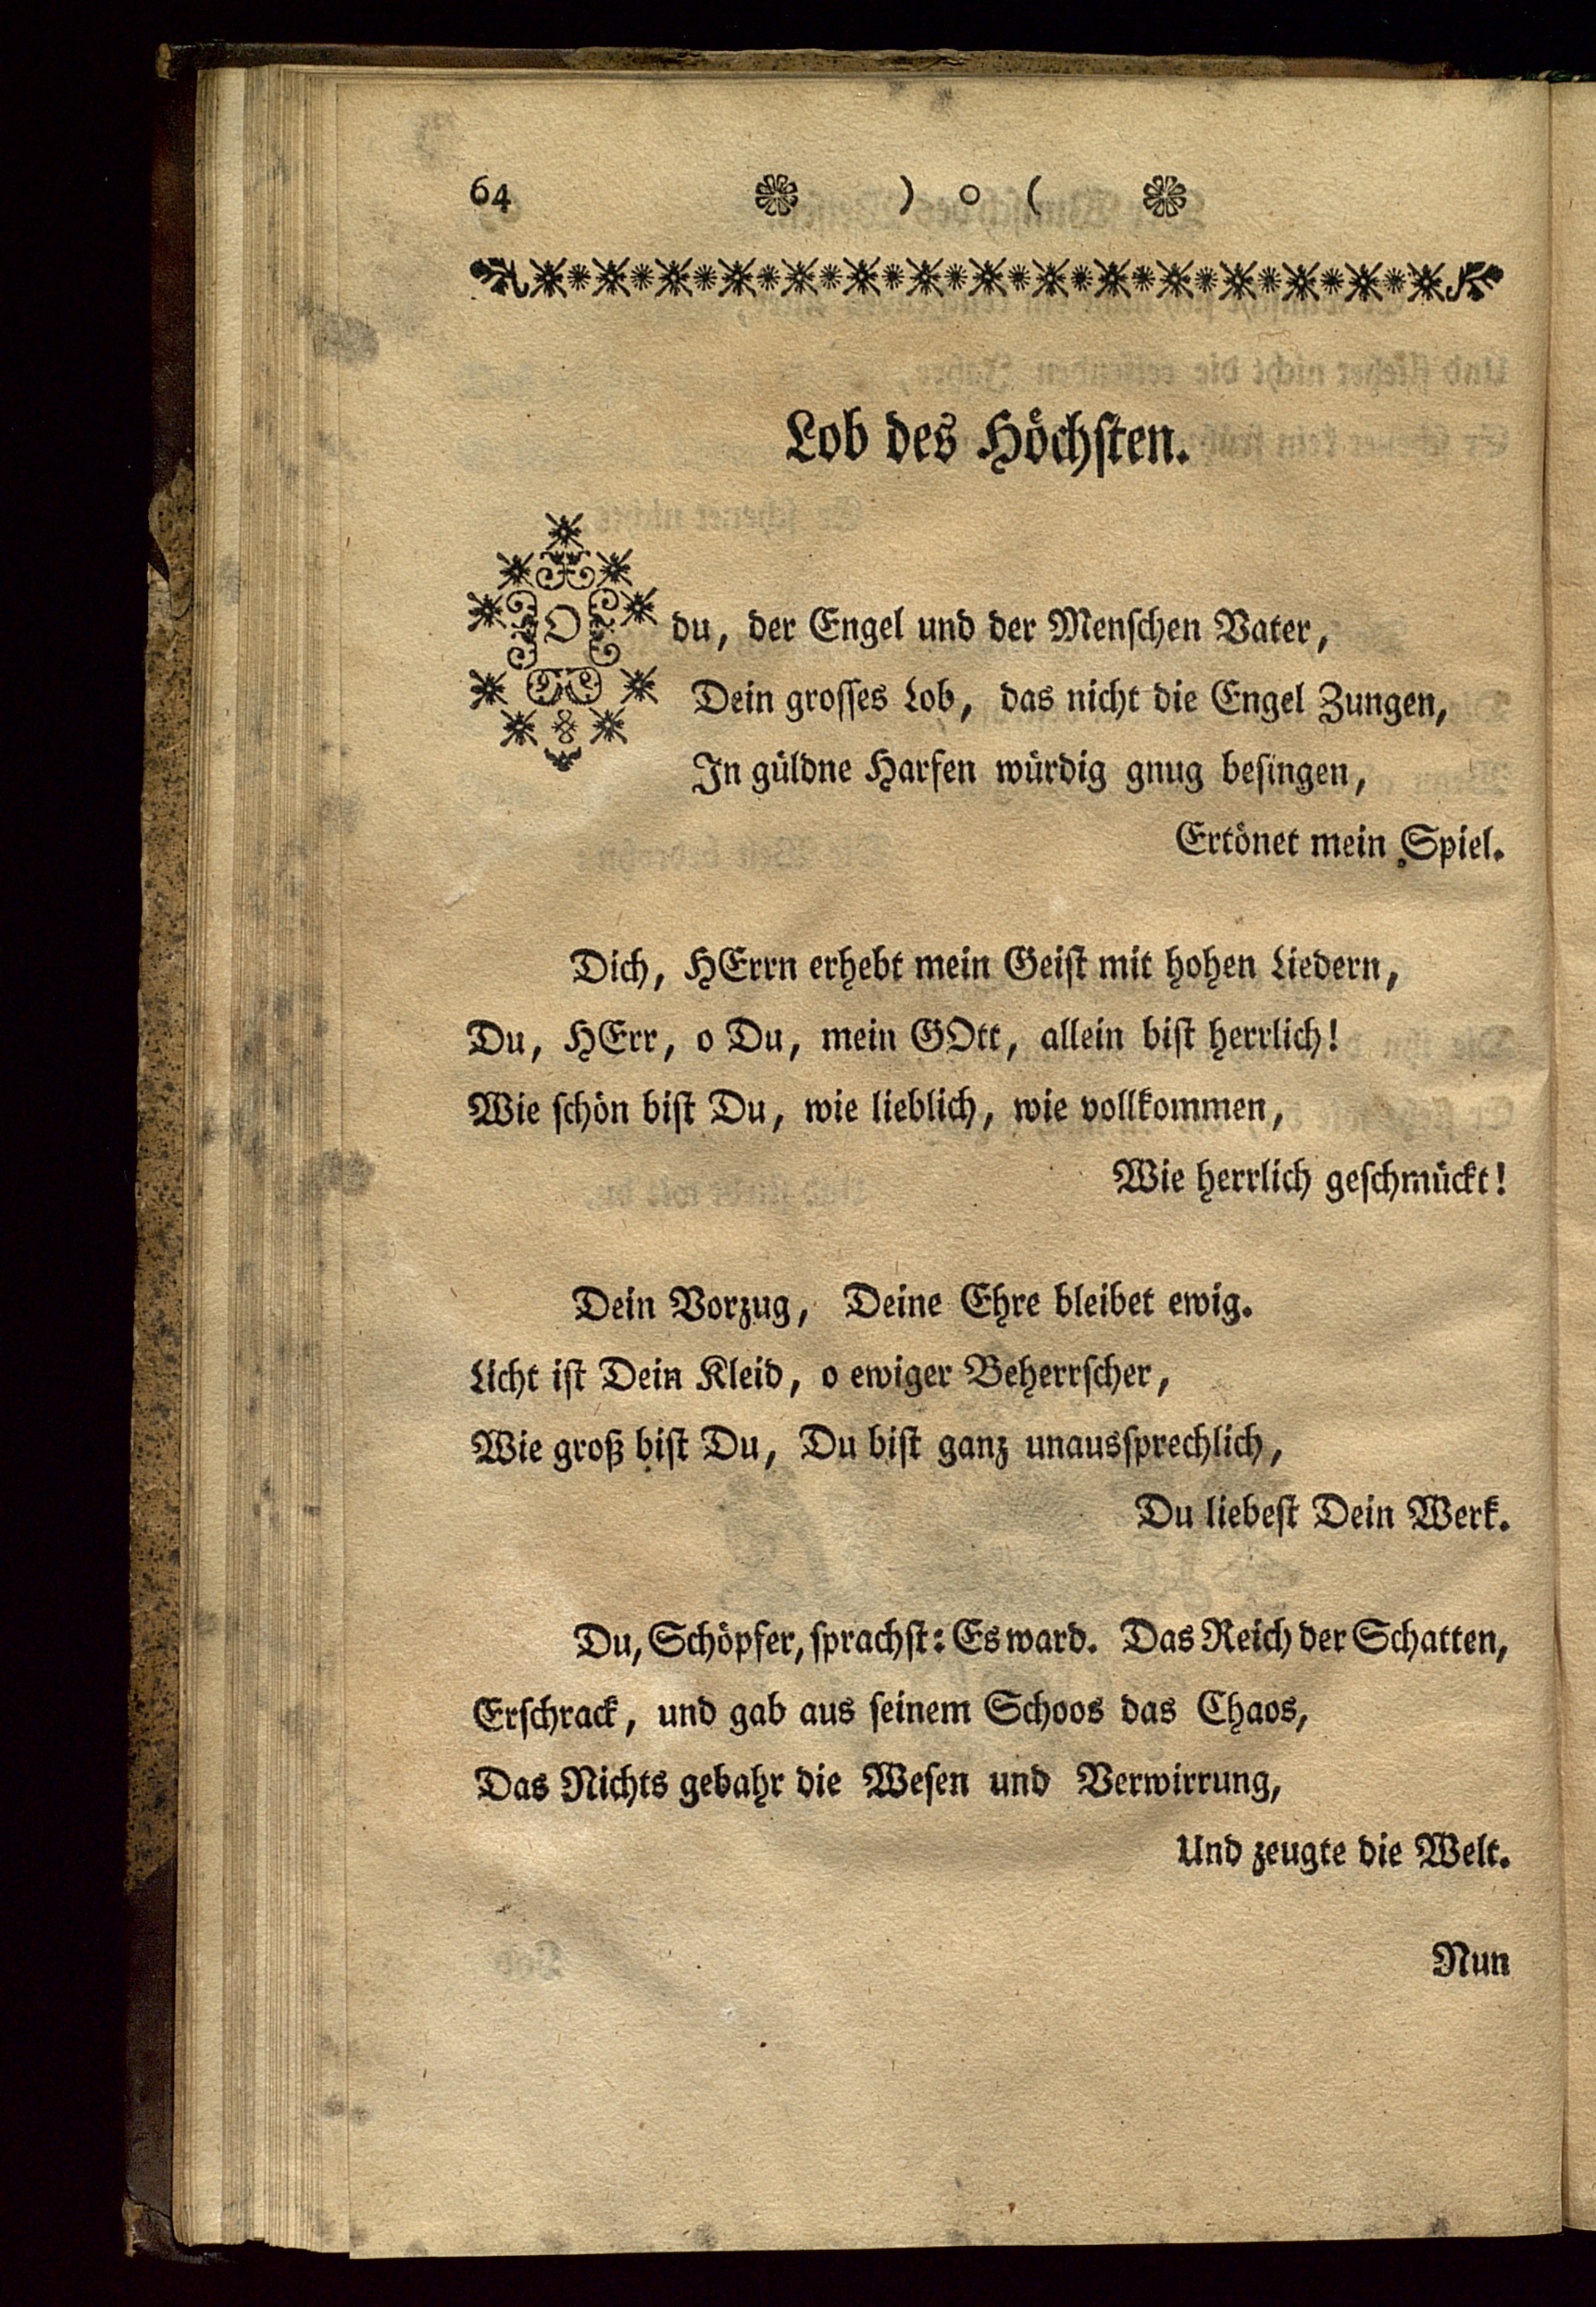 64 ) o (
Lob des Höchsten.
O du, der Engel und der Menschen Vater,
Dein grosses Lob, das nicht die Engel Zungen,
In güldne Harfen würdig gnug besingen,
Ertönet mein Spiel.
Dich, HErrn erhebt mein Geist mit hohen Liedern,
Du, HErr, o Du, mein GOtt, allein bist herrlich!
Wie schön bist Du, wie lieblich, wie vollkommen,
Wie herrlich geschmückt!
Dein Vorzug, Deine Ehre bleibet ewig.
Licht ist Dein Kleid, o ewiger Beherrscher,
Wie groß bist Du, Du bist ganz unaussprechlich,
Du liebest Dein Werk.
Du, Schöpfer, sprachst: Es ward. Das Reich der Schatten,
Erschrack, und gab aus seinem Schoos das Chaos,
Das Nichts gebahr die Wesen und Verwirrung,
Und zeugte die Welt.
Nun